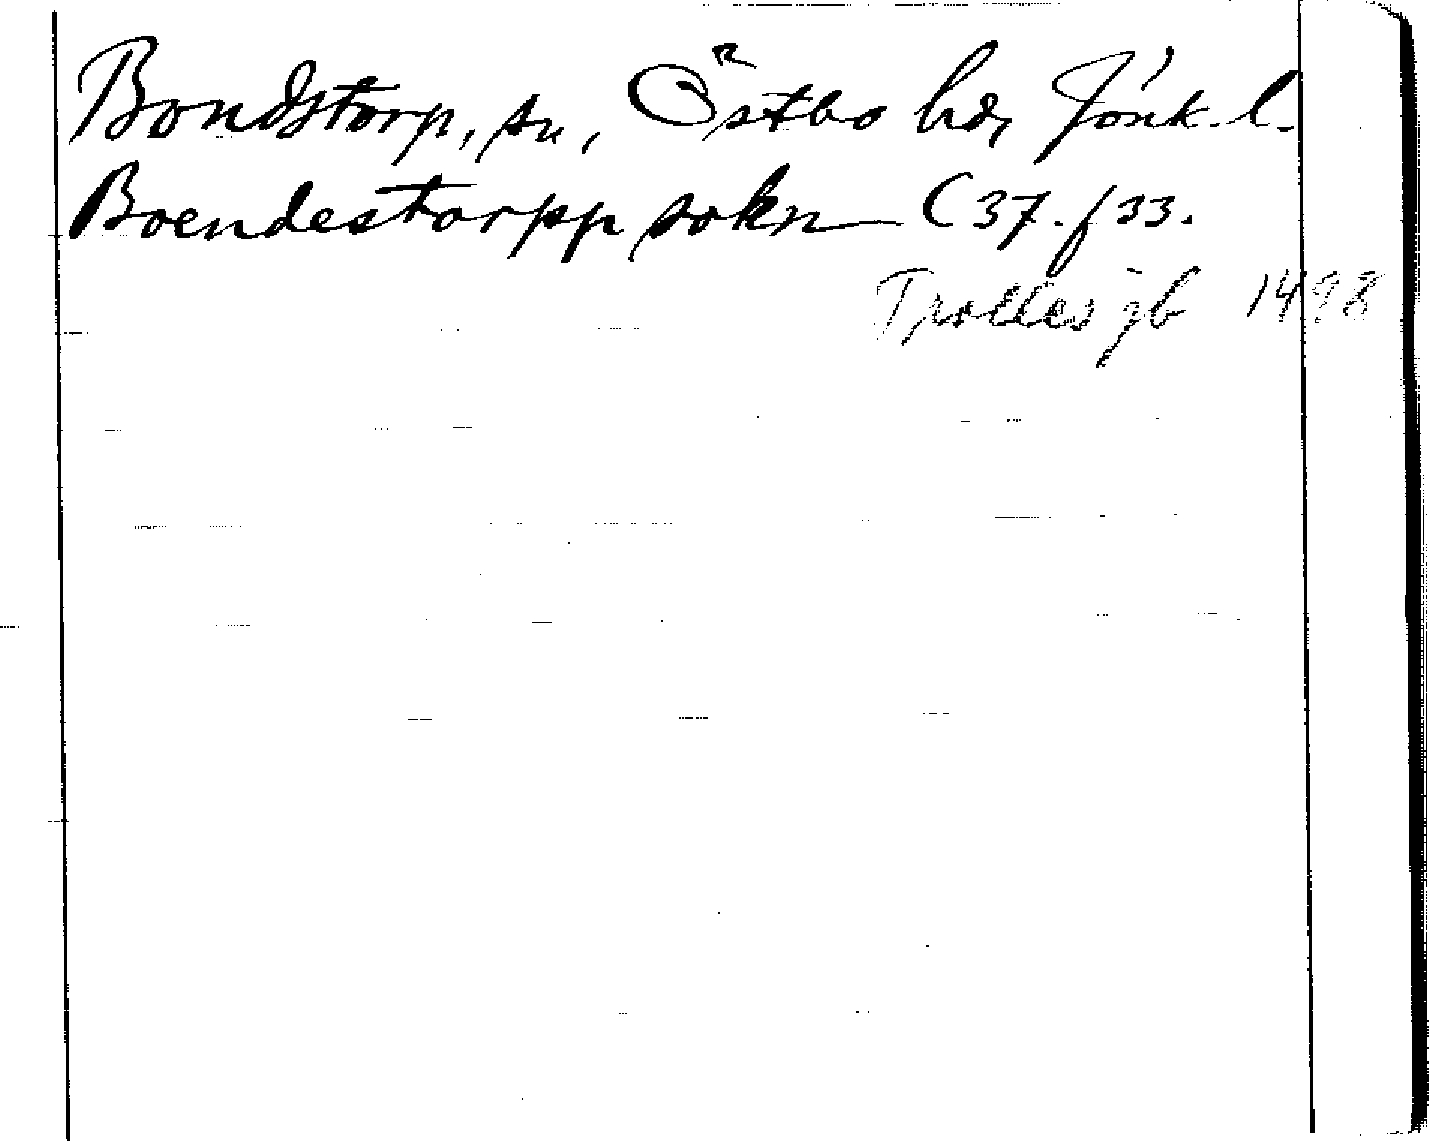 Bondstorp, sn, Östbo hd, Jönk. l.
Boendestorpp sokn C 37. f 33.
Trolles jb 1498